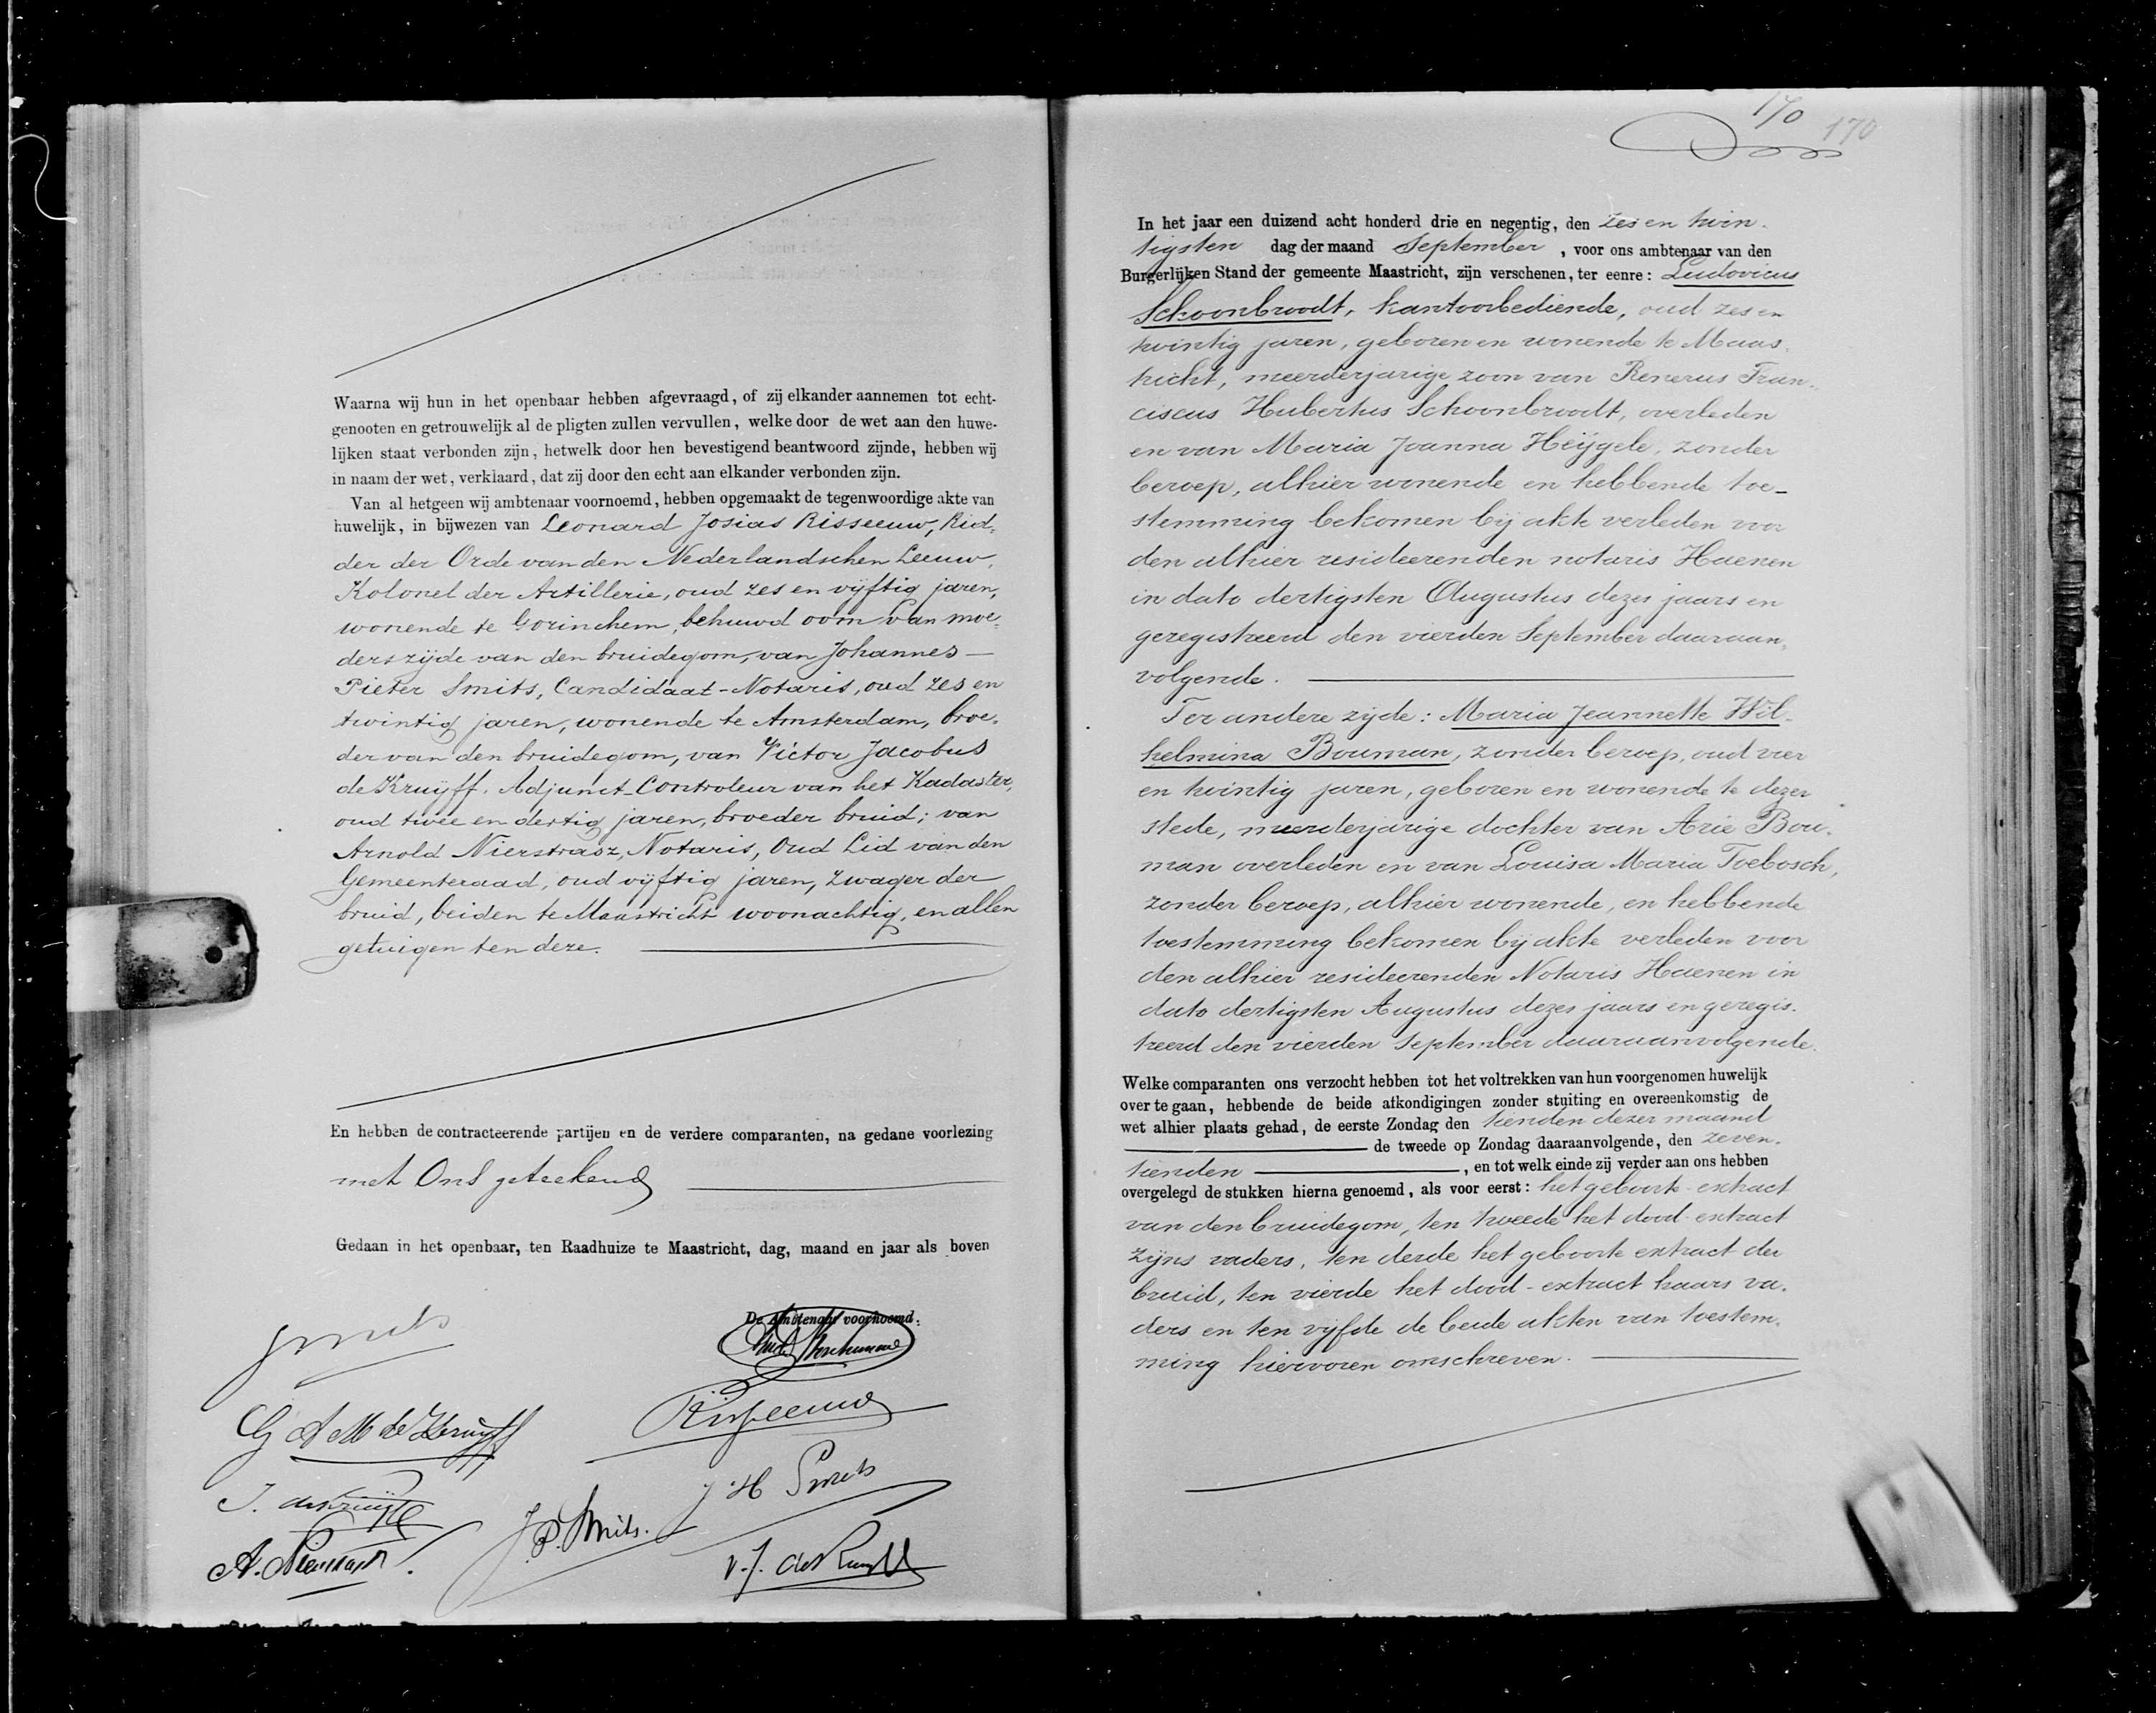 Waarna wij hun in het openbaar hebben afgevraagd, of zij elkander aannemen tot echt-
genooten en getrouwelijk al de pligten zullen vervullen, welke door de wet aan den huwe-
lijken staat verbonden zijn, hetwelk door hen bevestigend beantwoord zijnde, hebben wij
in naam der wet, verklaard, dat zij door den echt aan elkander verbonden zijn.
Van al hetgeen wij ambtenaar voornoemd, hebben opgemaakt de tegenwoordige akte van
huwelijk, in bijwezen van Leonard Josias Risseeuw, Rid-
der der Orde van den Nederlandschen Leeuw,
Kolonel der Artillerie, oud zes en vijftig jaren,
wonende te Gorinchem, behuwd oom van moe-
derszijde van den bruidegom, van Johannes
Pieter Smits, Candidaat-Notaris, oud zes en
twintig jaren, wonende te Amsterdam, broe-
der van den bruidegom, van Victor Jacobus
de Kruijff, Adjunct-Controleur van het Kadaster,
oud twee en dertig jaren, broeder bruid; van
Arnold Nierstrasz, Notaris, Oud Lid van den
Gemeenteraad, oud vijftig jaren, zwager der
bruid, beiden te Maastricht woonachtig, en allen
getuigen ten deze.
En hebben de contracteerende partijen en de verdere comparanten, na gedane voorlezing
met Ons geteekend
Gedaan in het openbaar, ten Raadhuize te Maastricht, dag, maand en jaar als boven
De Ambtenaar voornoemd:
Smits
G A M de Kruijff
Risseeuw
J. de Kruijff
J H Smits
A. Nierstrasz
J.P. Smits.
V.J. de Kruijff
170 170
In het jaar een duizend acht honderd drie en negentig, den zes en twin-
tigsten dag der maand September, voor ons ambtenaar van den
Burgerlijken Stand der gemeente Maastricht, zijn verschenen, ter eenre: Ludovicus
Schoonbroodt, kantoorbediende, oud zes en
twintig jaren, geboren en wonende te Maas-
tricht, meerderjarige zoon van Renerus Fran-
ciscus Hubertus Schoonbroodt, overleden
en van Maria Joanna Heijgele, zonder
beroep, alhier wonende en hebbende toe-
stemming bekomen bij akte verleden voor
den alhier resideerenden notaris Haenen
in dato dertigsten Augustus dezes jaars en
geregistreerd den vierden September daaraan-
volgende.
Ter andere zijde: Maria Jeannette Wil-
helmina Bouman, zonder beroep, oud vier
en twintig jaren, geboren en wonende te dezer
stede, meerderjarige dochter van Arie Bou-
man overleden en van Louisa Maria Toebosch,
zonder beroep, alhier wonende, en hebbende
toestemming bekomen bij akte verleden voor
den alhier resideerenden Notaris Haenen in
dato dertigsten Augustus dezes jaars en geregis-
treerd den vierden September daaraanvolgende.
Welke comparanten ons verzocht hebben tot het voltrekken van hun voorgenomen huwelijk
over te gaan, hebbende de beide afkondigingen zonder stuiting en overeenkomstig de
wet alhier plaats gehad, de eerste Zondag den tienden dezer maand
de tweede op Zondag daaraanvolgende, den zeven-
tienden, en tot welk einde zij verder aan ons hebben
overgelegd de stukken hierna genoemd, als voor eerst: het geboorte-extract
van den bruidegom, ten tweede het dood-extract
zijns vaders, ten derde het geboorte extract der
bruid, ten vierde het dood-extract haars va-
ders en ten vijfde de beide akten van toestem-
ming hiervoren omschreven.